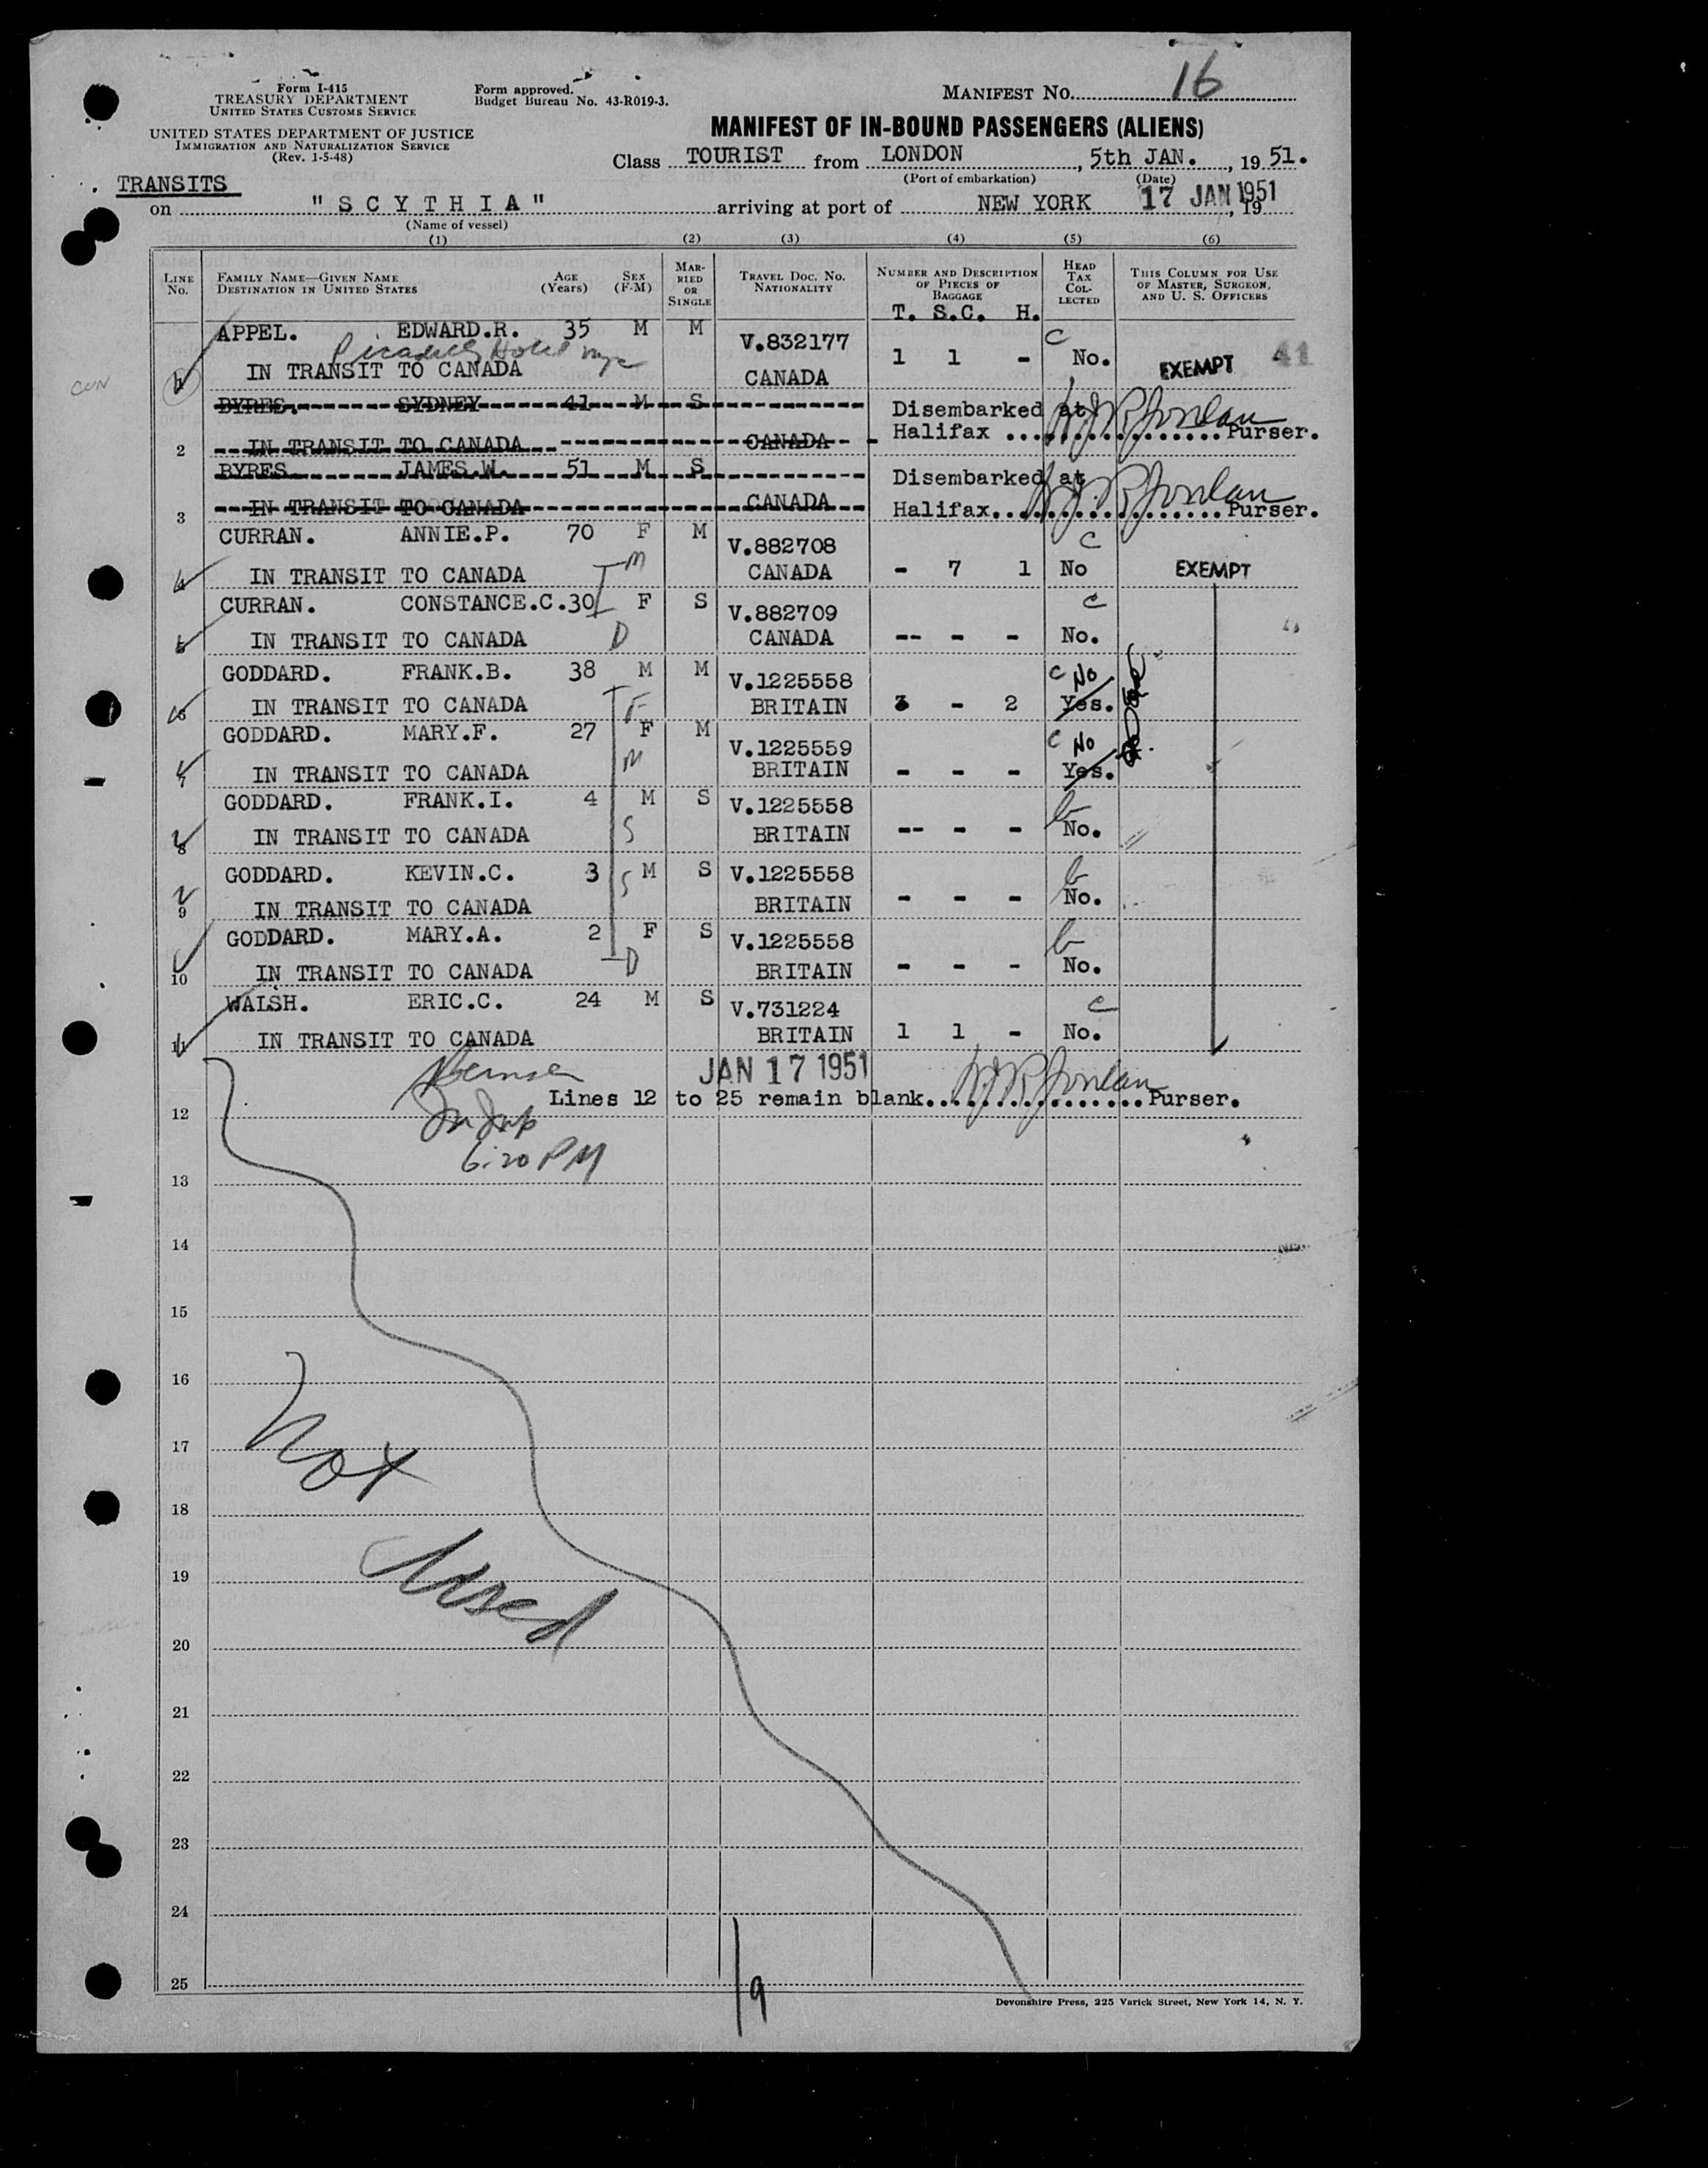 Form I-415
TREASURY DEPARTMENT
UNITED STATES CUSTOMS SERVICE
UNITED STATES DEPARTMENT OF JUSTICE
IMMIGRATION AND NATURALIZATION SERVICE
(Rev. 1-5-48)
Form approved.
Budget Bureau No. 43-R019-3.
MANIFEST NO. 16
MANIFEST OF IN-BOUND PASSENGERS (ALIENS)
Class TOURIST from LONDON, 5th JAN., 19 51.
(Port of embarkation) (Date)
TRANSITS
on "SCYTHIA" arriving at port of NEW YORK 17 JAN 1951, 19
(Name of vessel)
(1) (2) (3) (4) (5) (6)
LINE NO. FAMILY NAME—GIVEN NAME DESTINATION IN UNITED STATES AGE (Years) SEX (F-M) MARRIED OR SINGLE TRAVEL DOC. NO. NATIONALITY NUMBER AND DESCRIPTION OF PIECES OF BAGGAGE HEAD TAX COLLECTED THIS COLUMN FOR USE OF MASTER, SURGEON, AND U. S. OFFICERS
T. S.C. H.
APPEL. EDWARD.R. 35 M M V.832177 C
Hotel nyc
1 IN TRANSIT TO CANADA CANADA 1 1 - No. EXEMPT 41
CUN
BYRES. SYDNEY 41 M S Disembarked at
2 IN TRANSIT TO CANADA CANADA Halifax Purser.
BYRES JAMES.W. 51 M S Disembarked at
3 IN TRANSIT TO CANADA CANADA Halifax Purser.
CURRAN. ANNIE.P. 70 F M V.882708 C
4 IN TRANSIT TO CANADA M CANADA - 7 1 No EXEMPT
CURRAN. CONSTANCE.C. 30 F S V.882709 C
5 IN TRANSIT TO CANADA D CANADA -- - - No.
GODDARD. FRANK.B. 38 M M V.1225558 C No
6 IN TRANSIT TO CANADA F BRITAIN 3 - 2 Yes.
GODDARD. MARY.F. 27 F M V.1225559 C No
7 IN TRANSIT TO CANADA M BRITAIN - - - Yes.
GODDARD. FRANK.I. 4 M S V.1225558 b
8 IN TRANSIT TO CANADA S BRITAIN -- - - No.
GODDARD. KEVIN.C. 3 S M S V.1225558 b
9 IN TRANSIT TO CANADA BRITAIN - - - No.
GODDARD. MARY.A. 2 F S V.1225558 b
10 IN TRANSIT TO CANADA D BRITAIN - - - No.
WALSH. ERIC.C. 24 M S V.731224 C
11 IN TRANSIT TO CANADA BRITAIN 1 1 - No.
JAN 17 1951
12 Lines 12 to 25 remain blank. Purser.
6:20 PM
13
14
15
16
17
Not
18
19
Closed
20
21
22
23
24
25
19
Devonshire Press, 225 Varick Street, New York 14, N. Y.